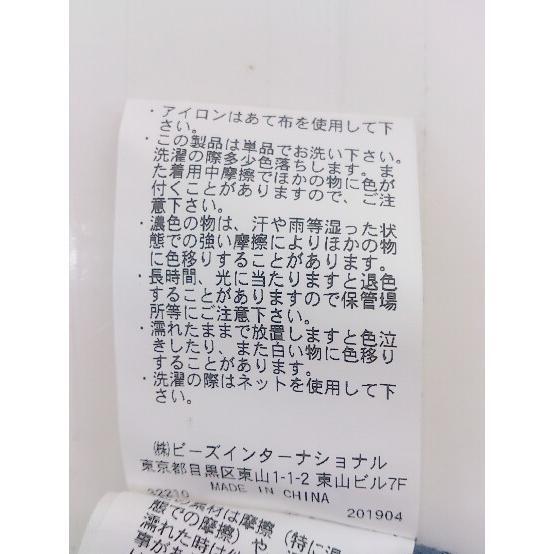 ・アイロンはあて布を使用して下
さい。
・この製品は単品でお洗い下さい。
洗濯の際多少色落ちします。ま
た着用中摩擦でほかの物に色が
付くことがありますので、ご注
意下さい。
・濃色の物は、汗や雨等湿った状
態での強い摩擦によりほかの物
に色移りすることがあります。
・長時間、光に当たりますと退色
することがありますので保管場
所等にご注意下さい。
・濡れたままで放置しますと色泣
きしたり、また白い物に色移り
することがあります。
・洗濯の際はネットを使用して下
さい。
㈱ビーズインターナショナル
東京都目黒区東山1-1-2 東山ビル7F
MADE IN CHINA
201904
素材は摩擦 (特に湿
態での摩擦)や
濡れた時は
事があ